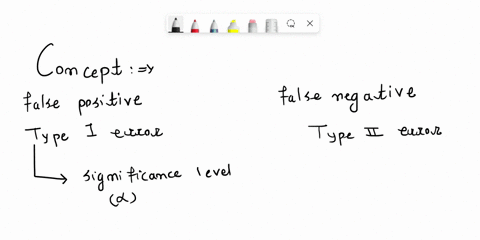 Concept :⇒
false positive
Type I error
significance level
(α)
false negative
Type II error